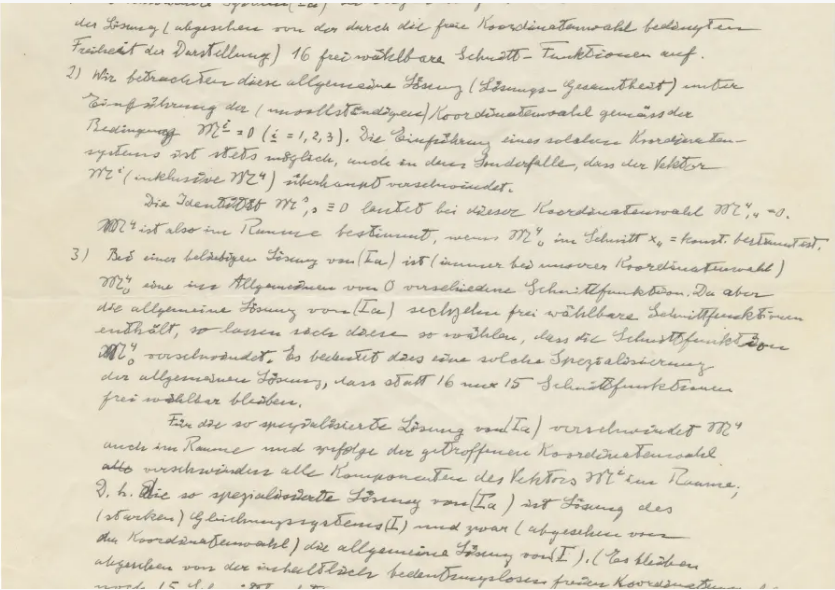 der Lösung (abgesehen von der durch die freie Koordinatenwahl bedingten
Freiheit der Darstellung) 16 frei wählbare Schnitt-Funktionen auf.
2) Wir betrachten diese allgemeine Lösung (Lösungs-Gesamtheit) unter
Einführung der (unvollständigen) Koordinatenwahl gemäss der
Bedingung 𝔐ⁱ = 0 (i = 1,2,3). Die Einführung eines solchen Koordinaten-
systems ist stets möglich, auch in dem Sonderfalle, dass der Vektor
𝔐ⁱ (inklusive 𝔐⁴) überhaupt verschwindet.
Die Identität 𝔐ˢ,ₛ ≡ 0 lautet bei dieser Koordinatenwahl 𝔐⁴,₄ = 0.
𝔐⁴ ist also im Raume bestimmt, wenn 𝔐⁴₀ im Schnitt x₄ = konst. bestimmt ist.
3) Bei einer beliebigen Lösung von (Ia) ist (immer bei unserer Koordinatenwahl)
𝔐⁴₀ eine im Allgemeinen von 0 verschiedene Schnittfunktion. Da aber
die allgemeine Lösung von (Ia) sechzehn frei wählbare Schnittfunktionen
enthält, so lassen sich diese so wählen, dass die Schnittfunktion
𝔐⁴₀ verschwindet. Es bedeutet dies eine solche Spezialisierung
der allgemeinen Lösung, dass statt 16 nur 15 Schnittfunktionen
frei wählbar bleiben.
Für die so spezialisierte Lösung von (Ia) verschwindet 𝔐⁴
auch im Raume und zufolge der getroffenen Koordinatenwahl
verschwinden alle Komponenten des Vektors 𝔐ⁱ im Raume,
D. h. Die so spezialisierte Lösung von (Ia) ist Lösung des
(starken) Gleichungssystems (I) und zwar (abgesehen von
der Koordinatenwahl) die allgemeine Lösung von (I). (Es bleiben
abgesehen von der inhaltlich bedeutungslosen freien
noch 15